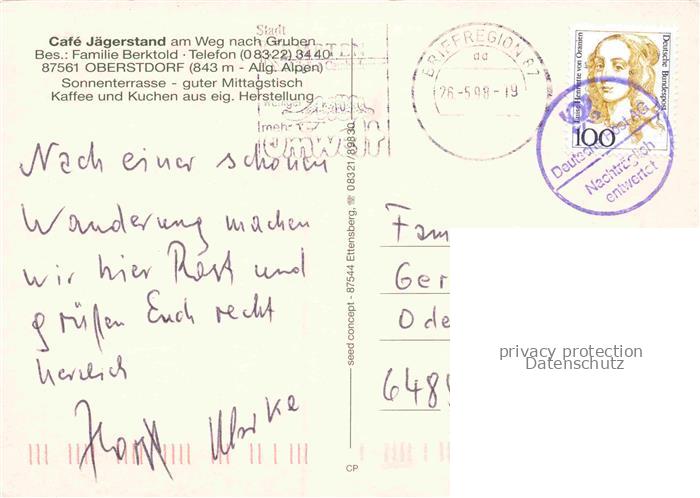 Café Jägerstand am Weg nach Gruben
Bes.: Familie Berktold · Telefon (0 83 22) 34 40
87561 OBERSTDORF (843 m - Allg. Alpen)
Sonnenterrasse - guter Mittagstisch
Kaffee und Kuchen aus eig. Herstellung
Stadt
Umwelt
BRIEFREGION 87
aa
26.-5.98-19
Luise Henriette von Oranien
Deutsche Bundespost
100
Deutsche Post AG
Nachträglich
entwertet
Nach einer schönen
Wanderung machen
wir hier Rast und
grüßen Euch recht
herzlich
Horst Ulrike
seed concept - 87544 Ettensberg, ☏ 08321/89830
Fam
Ger
Ode
648
privacy protection
Datenschutz
CP